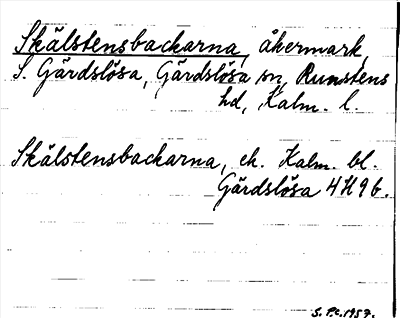 Skälstensbackarna, åkermark,
S. Gärdslösa, Gärdslösa sn, Runstens
hd, Kalm. l.
Skälstensbackarna, ek. Kalm. bl.
Gärdslösa 4H9b.
S. Pc. 1957.